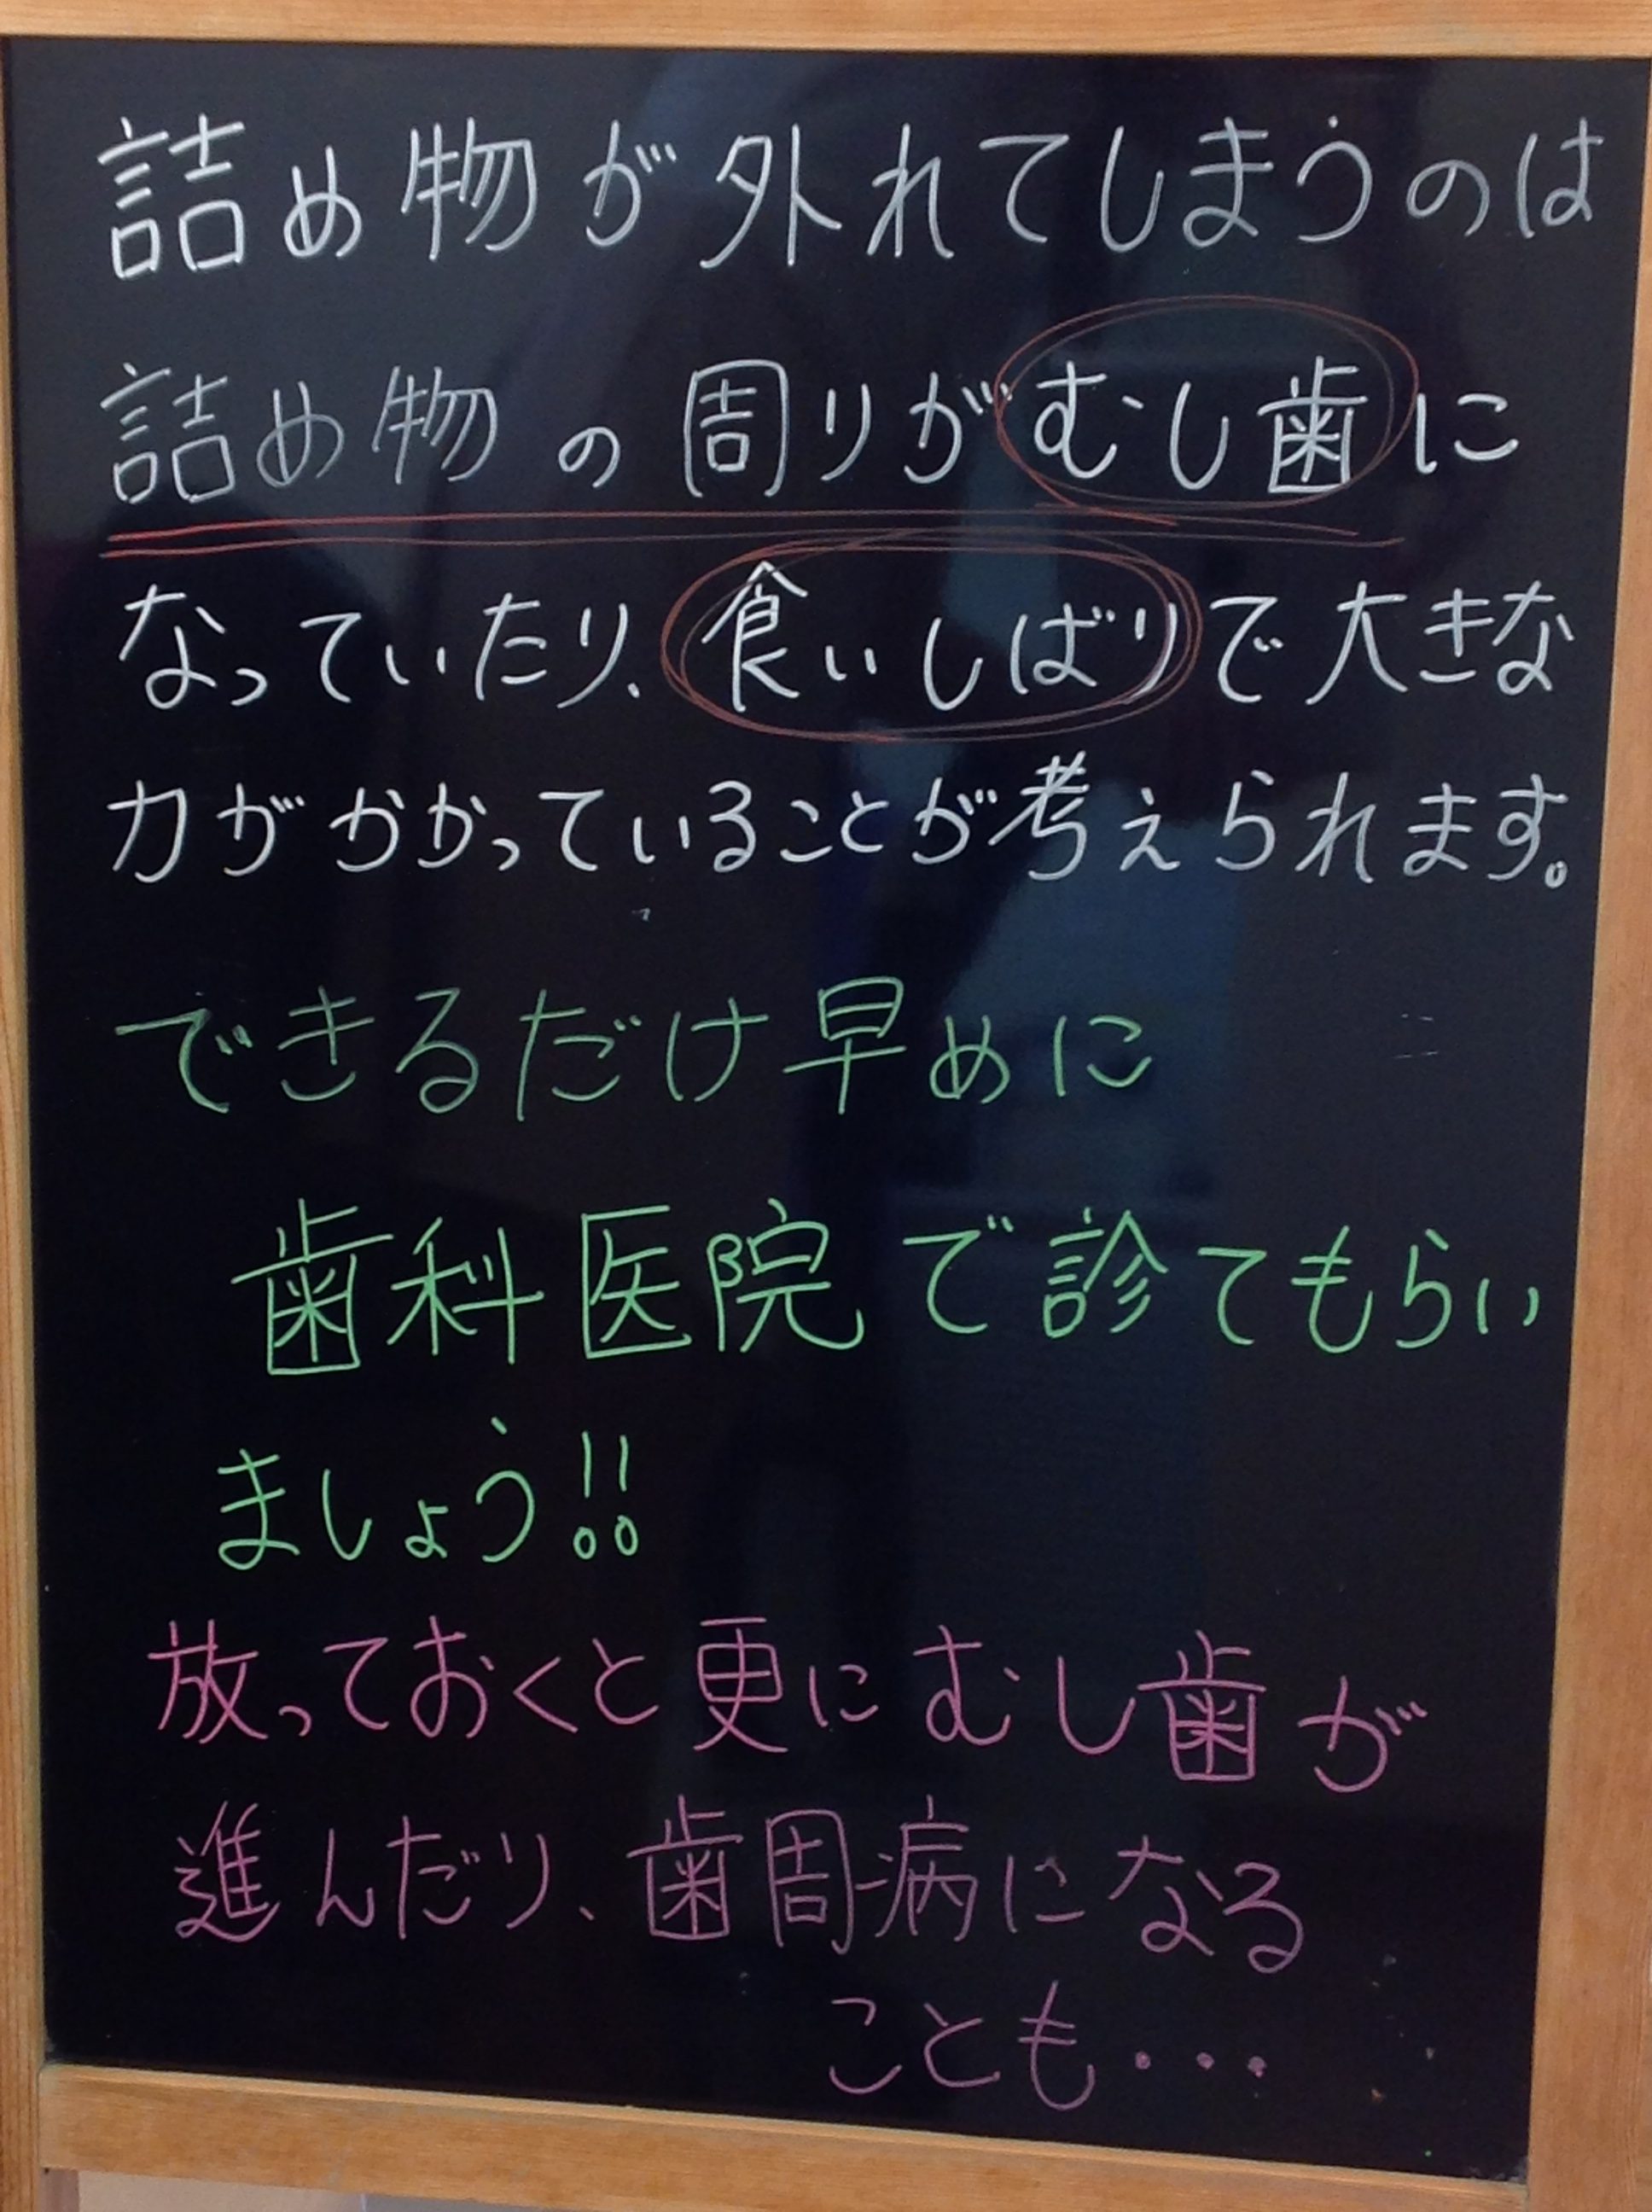 詰め物が外れてしまうのは
詰め物の周りがむし歯に
なっていたり、食いしばりで大きな
力がかかっていることが考えられます。
できるだけ早めに
歯科医院で診てもらい
ましょう!!
放っておくと更にむし歯が
進んだり、歯周病になる
ことも・・・